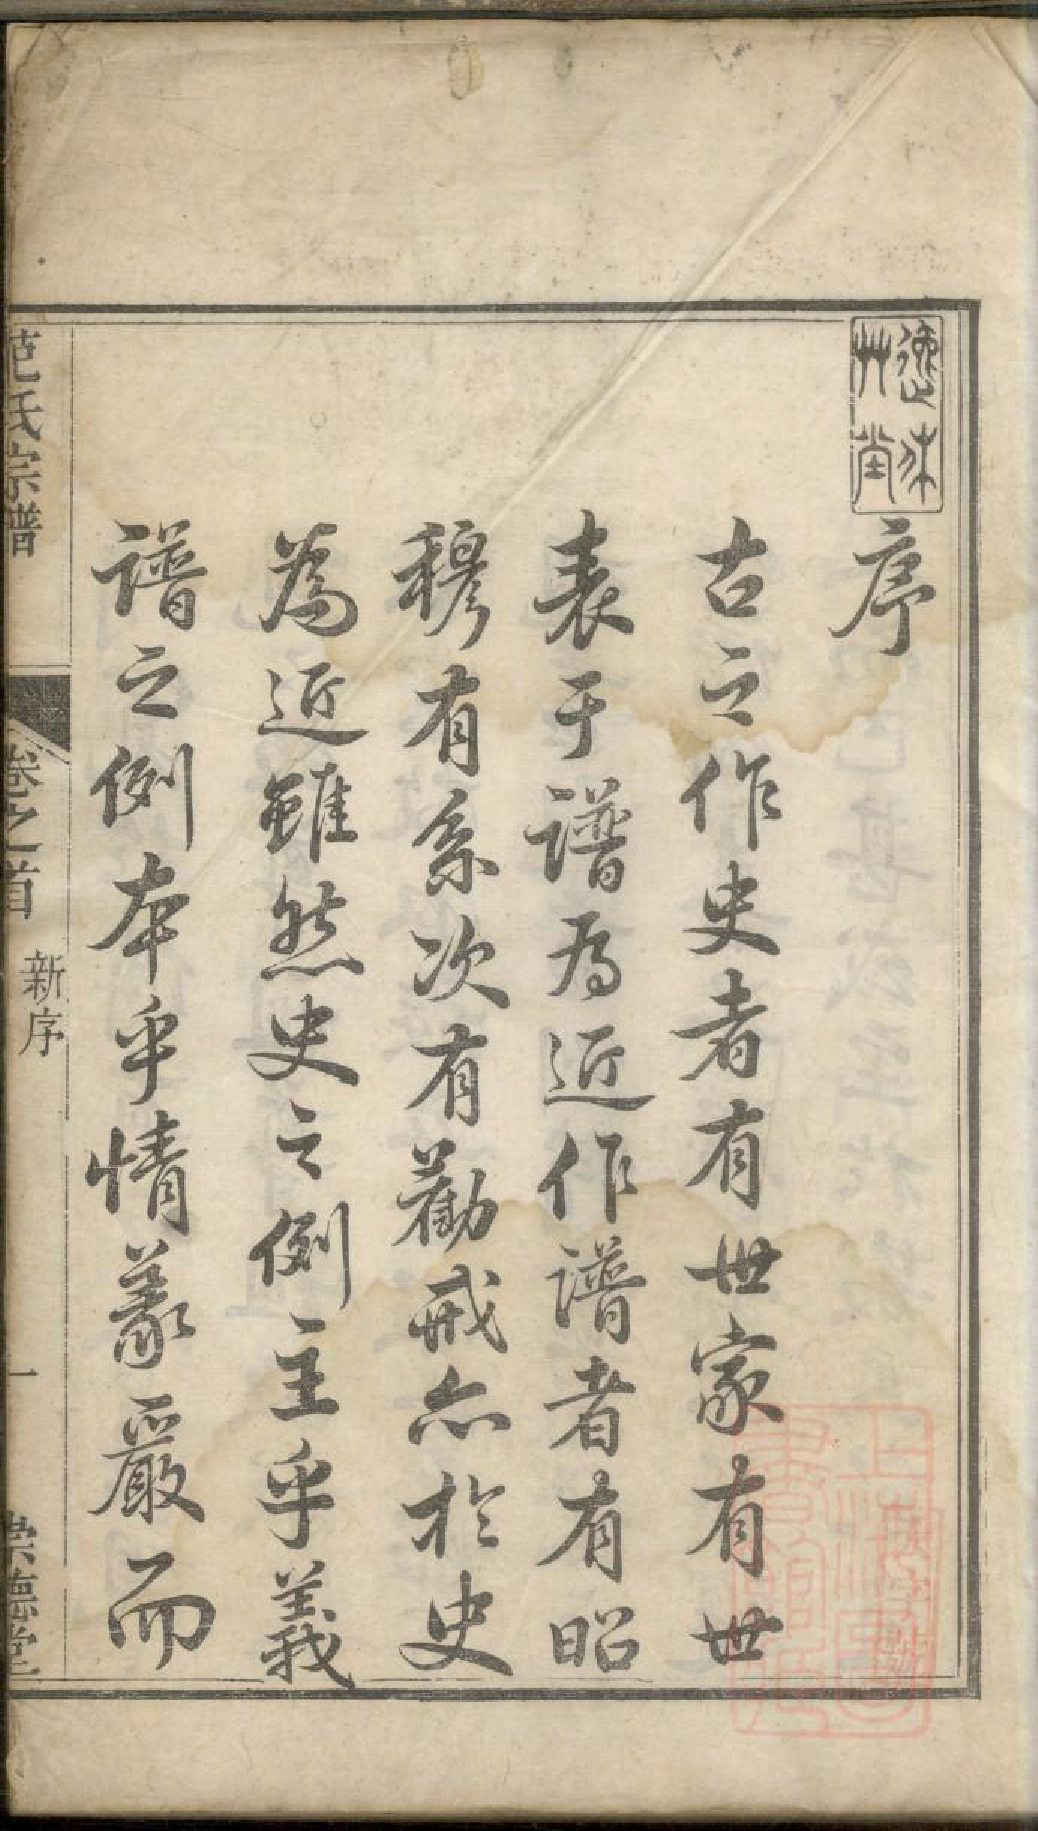 序
古之作史者有世家有世
表于譜為近作譜者有昭
穆有系次有勸戒亦於史
為近雖然史之例主乎義
譜之例本乎情義嚴而
范氏宗譜
卷之首
新序
一
崇德堂
上海圖書館藏